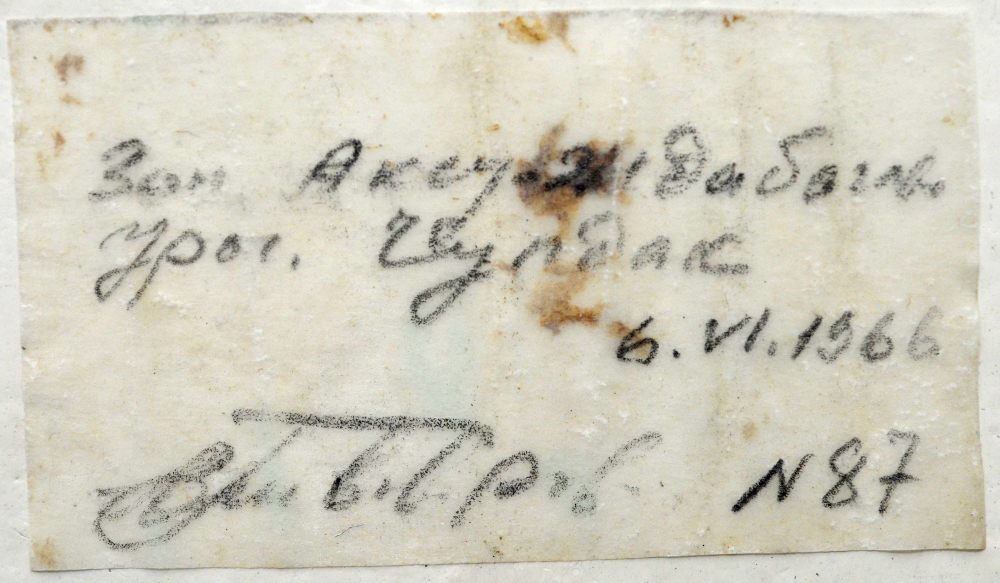 Зап. Аксу-Жабаглы
Уроч. Чулдак
6.VI.1966
N 87